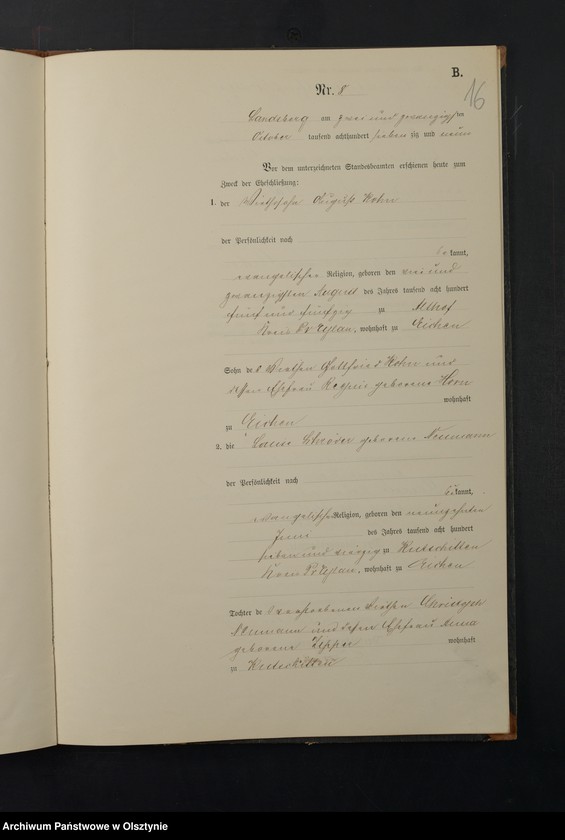 B.
16
Nr. 8
Landsberg am zwei und zwanzigsten
October tausend achthundert sieben zig und neun
Vor dem unterzeichneten Standesbeamten erschienen heute zum
Zweck der Eheschließung:
1. der Wirthssohn August Hohn
der Persönlichkeit nach
bekannt,
evangelischer Religion, geboren den drei und
zwanzigsten August des Jahres tausend acht hundert
fünf und fünfzig zu Althof
Kreis Pr Eylau, wohnhaft zu Eichen
Sohn des Wirthen Gottfried Hohn und
dessen Ehefrau Regine geborene Horn
wohnhaft
zu Eichen
2. die Louise Schröder geborene Neumann
der Persönlichkeit nach
bekannt,
evangelischer Religion, geboren den neunzehnten
Juni des Jahres tausend acht hundert
sieben und vierzig zu
Kreis Pr Eylau, wohnhaft zu Eichen
Tochter des verstorbenen Wirthen Christoph
Neumann und dessen Ehefrau Anna
geborene wohnhaft
zu
Archiwum Państwowe w Olsztynie